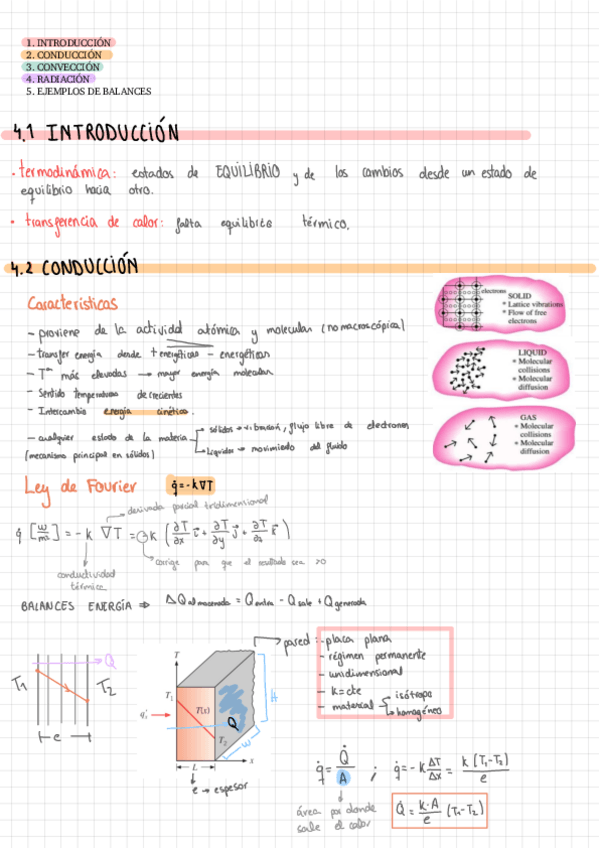 1. INTRODUCCIÓN
2. CONDUCCIÓN
3. CONVECCIÓN
4. RADIACIÓN
5. EJEMPLOS DE BALANCES
4.1 INTRODUCCIÓN
· termodinámica: estados de EQUILIBRIO y de los cambios desde un estado de
equilibrio hacia otro.
· transferencia de calor: falta equilibrio térmico.
4.2 CONDUCCIÓN
Características
- proviene de la actividad atómica y molecular (no macroscópica)
- transfer energía desde + energéticas - energéticas
- Tª más elevadas → mayor energía molecular
- Sentido temperaturas decrecientes
- Intercambio energía cinética.
- cualquier estado de la materia
(mecanismo principal en sólidos)
sólidos → vibración, flujo libre de electrones
líquidos → movimiento del fluido
electrons
SOLID
* Lattice vibrations
* Flow of free
electrons
LIQUID
* Molecular
collisions
* Molecular
diffusion
GAS
* Molecular
collisions
* Molecular
diffusion
Ley de Fourier q̇ = -k∇T
derivada parcial tridimensional
q̇ [W/m²] = -k ∇T = -k (∂T/∂x i + ∂T/∂y j + ∂T/∂z k)
corrige para que el resultado sea >0
conductividad
térmica
BALANCES ENERGÍA ⇒ ΔQalmacenado = Qentra - Qsale + Qgenerada
Q
T₁
T₂
e
T
T₁
T(x)
T₂
qₓ
Q
H
W
L
x
e → espesor
pared: - placa plana
- régimen permanente
- unidimensional
- k = cte
- material
isótropa
homogéneo
q̇ = Q̇/A ; q̇ = -k ΔT/Δx = k(T₁-T₂)/e
área por donde
sale el calor
Q̇ = k·A/e (T₁-T₂)